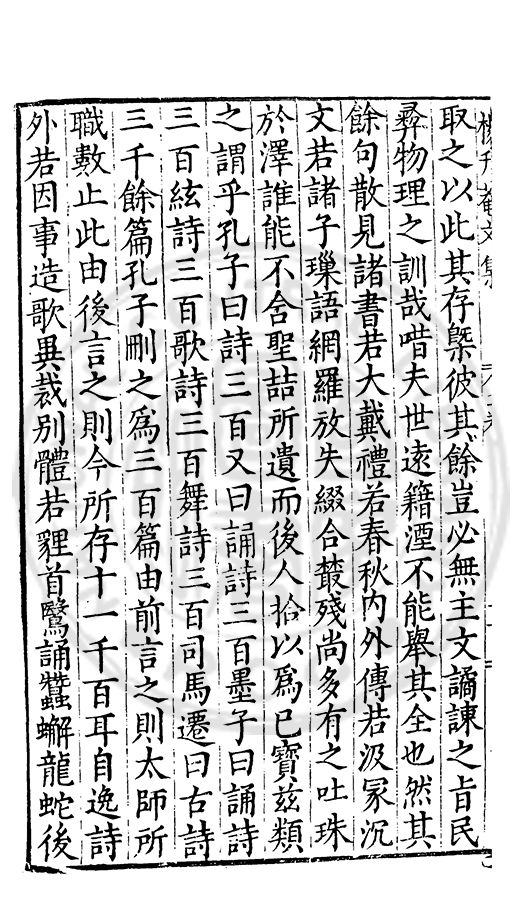 取之以此其存槩彼其餘豈必無主文譎諫之旨民
彛物理之訓哉喈夫世遠籍湮不能舉其全也然其
餘句散見諸書若大戴禮若春秋内外傳若汲冡沉
文若諸子璅語網羅放失綴合藂殘尚多有之吐珠
於澤誰能不含聖喆所遺而後人拾以爲已寶兹類
之謂乎孔子曰詩三百又曰誦詩三百墨子曰誦詩
三百絃詩三百歌詩三百舞詩三百司馬遷曰古詩
三千餘篇孔子刪之爲三百篇由前言之則太師所
職數止此由後言之則今所存十一千百耳自逸詩
外若因事造歌異裁别體若貍首鷖誦蠶蠏龍蛇後